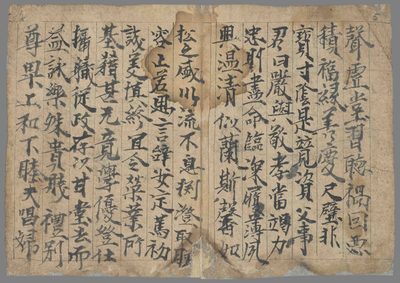 聲虛堂習聽禍因惡
積福緣善慶尺璧非
寶寸陰是競資父事
君曰嚴與敬孝當竭力
忠則盡命臨深履薄夙
興温清似蘭斯馨如
松之盛川流不息淵澄取暎
容止若思言辞安定篤初
誠美慎終宜令榮業所
基藉甚无竟學優登仕
攝職從政存以甘棠去而
益詠樂殊貴賤禮別
尊卑上和下睦夫唱婦